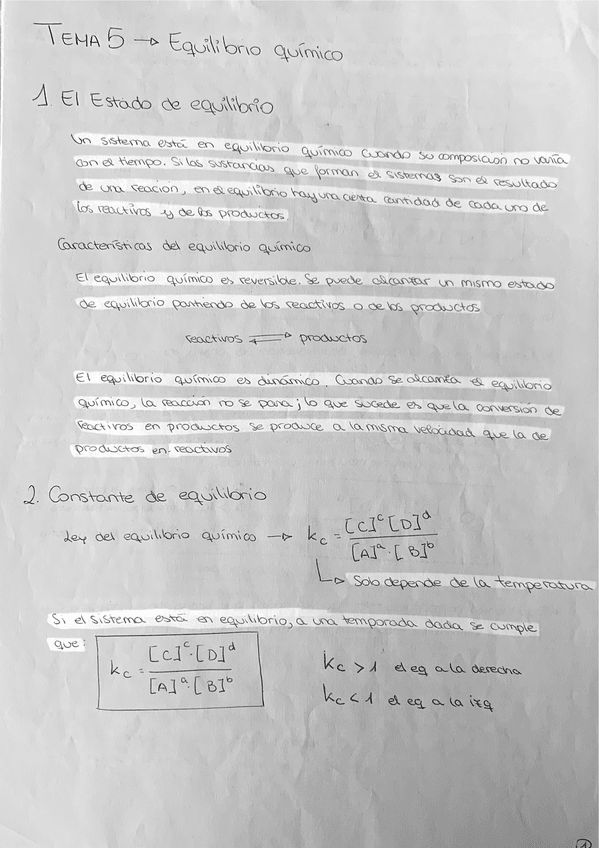 TEMA 5 → Equilibrio químico
1 El Estado de equilibrio
Un sistema está en equilibrio químico cuando su composición no varía
con el tiempo. Si las sustancias que forman el sistemas son el resultado
de una reacion, en el equilibrio hay una cierta cantidad de cada uno de
los reactivos y de los productos.
Características del equilibrio químico
El equilibrio químico es reversible. Se puede alcanzar un mismo estado
de equilibrio partiendo de los reactivos o de los productos
reactivos ⇌ productos
El equilibrio químico es dinámico. Cuando se alcanza el equilibrio
químico, la reacción no se para; lo que sucede es que la conversión de
reactivos en productos se produce a la misma velocidad que la de
productos en reactivos
2. Constante de equilibrio
Ley del equilibrio químico → kc = [C]^c [D]^d / [A]^a · [B]^b
↳ Solo depende de la temperatura
Si el sistema está en equilibrio, a una temporada dada se cumple
que: kc = [C]^c · [D]^d / [A]^a · [B]^b
kc > 1 el eq a la derecha
kc < 1 el eq a la izq
1